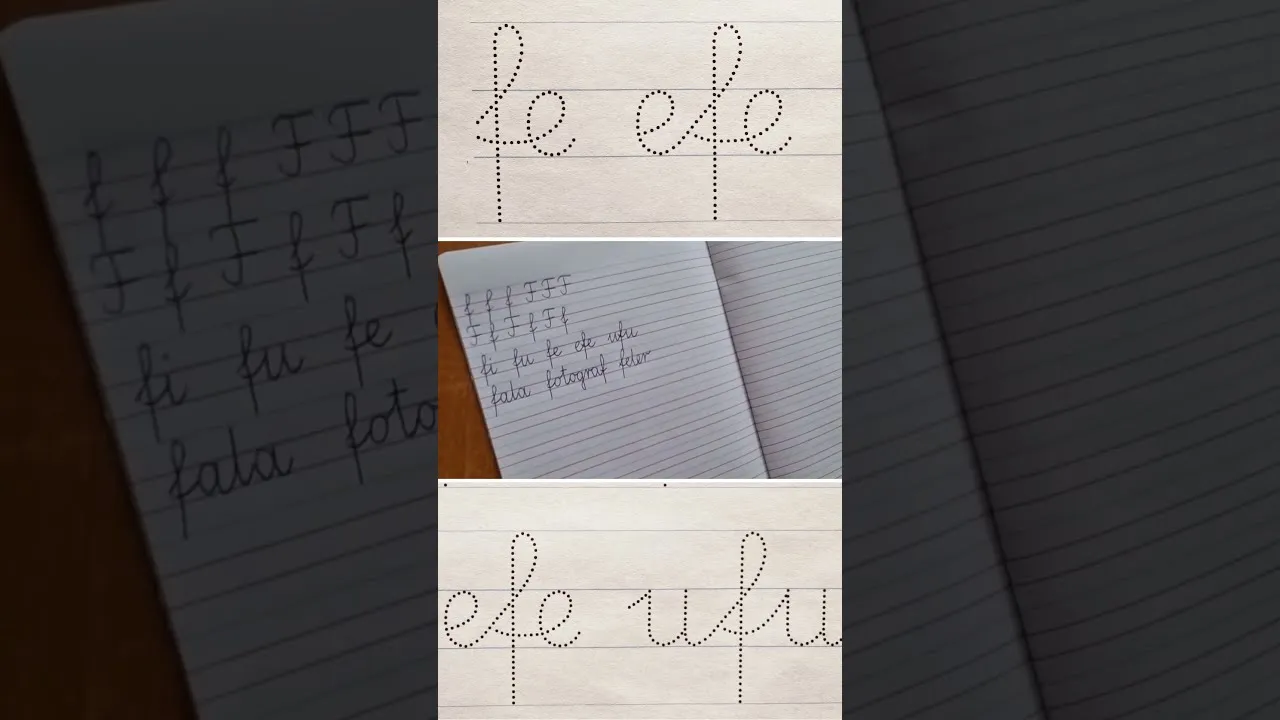 fe efe
f f f F F F
F f F f F f
fi fu fe efe ufu
fata fotograf feter
efe ufu